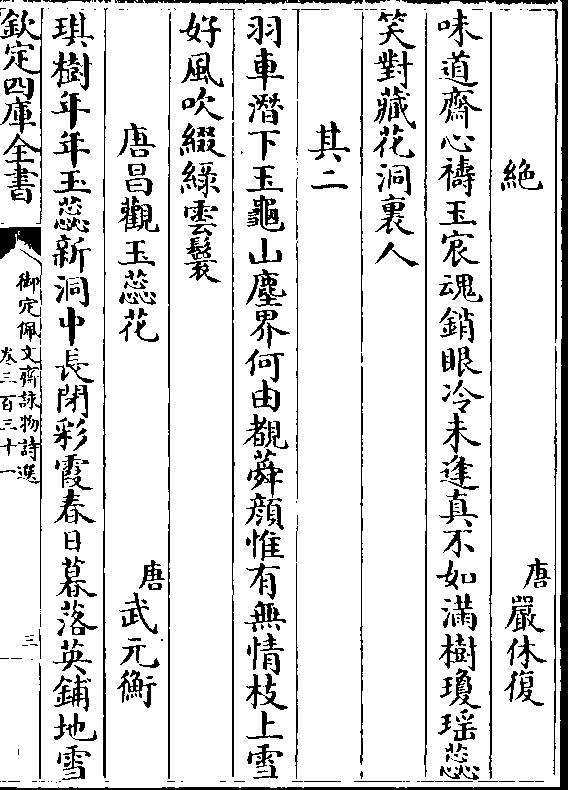 絶 唐 嚴休復
味道齋心禱玉宸魂銷眼冷未逢真不如滿樹瓊瑶蕊
笑對藏花洞裏人
其二
羽車潛下玉龜山塵界何由覩蕣顔惟有無情枝上雪
好風吹綴緑雲鬟
唐昌觀玉蕊花 唐 武元衡
琪樹年年玉蕊新洞中長閉彩霞春日暮落英鋪地雪
欽定四庫全書
御定佩文齋詠物詩選
卷三百三十一
三